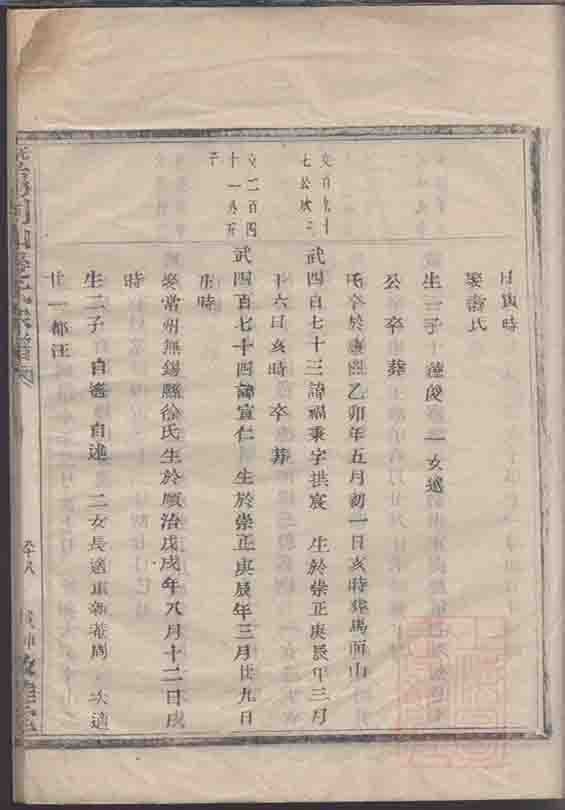 日寅時
娶翁氏
生一子 德俊 一女適
公 卒 葬
氏卒於康熙乙卯年五月初一日亥時葬馬面山
文百九十
七公次子
武四百七十三諱福秉字拱宸 生於崇正庚辰年三月
十六日亥時 卒 葬
文一百四
十一公五
子
武四百七十四諱宣仁 生於崇正庚辰年三月廿九日
時
娶常州無錫縣徐氏生於順治戊戌年八月十二日戌
時
生二子 自遙 自述 二女長適東新菴周 次適
廿一都汪
六十八
敦睦堂